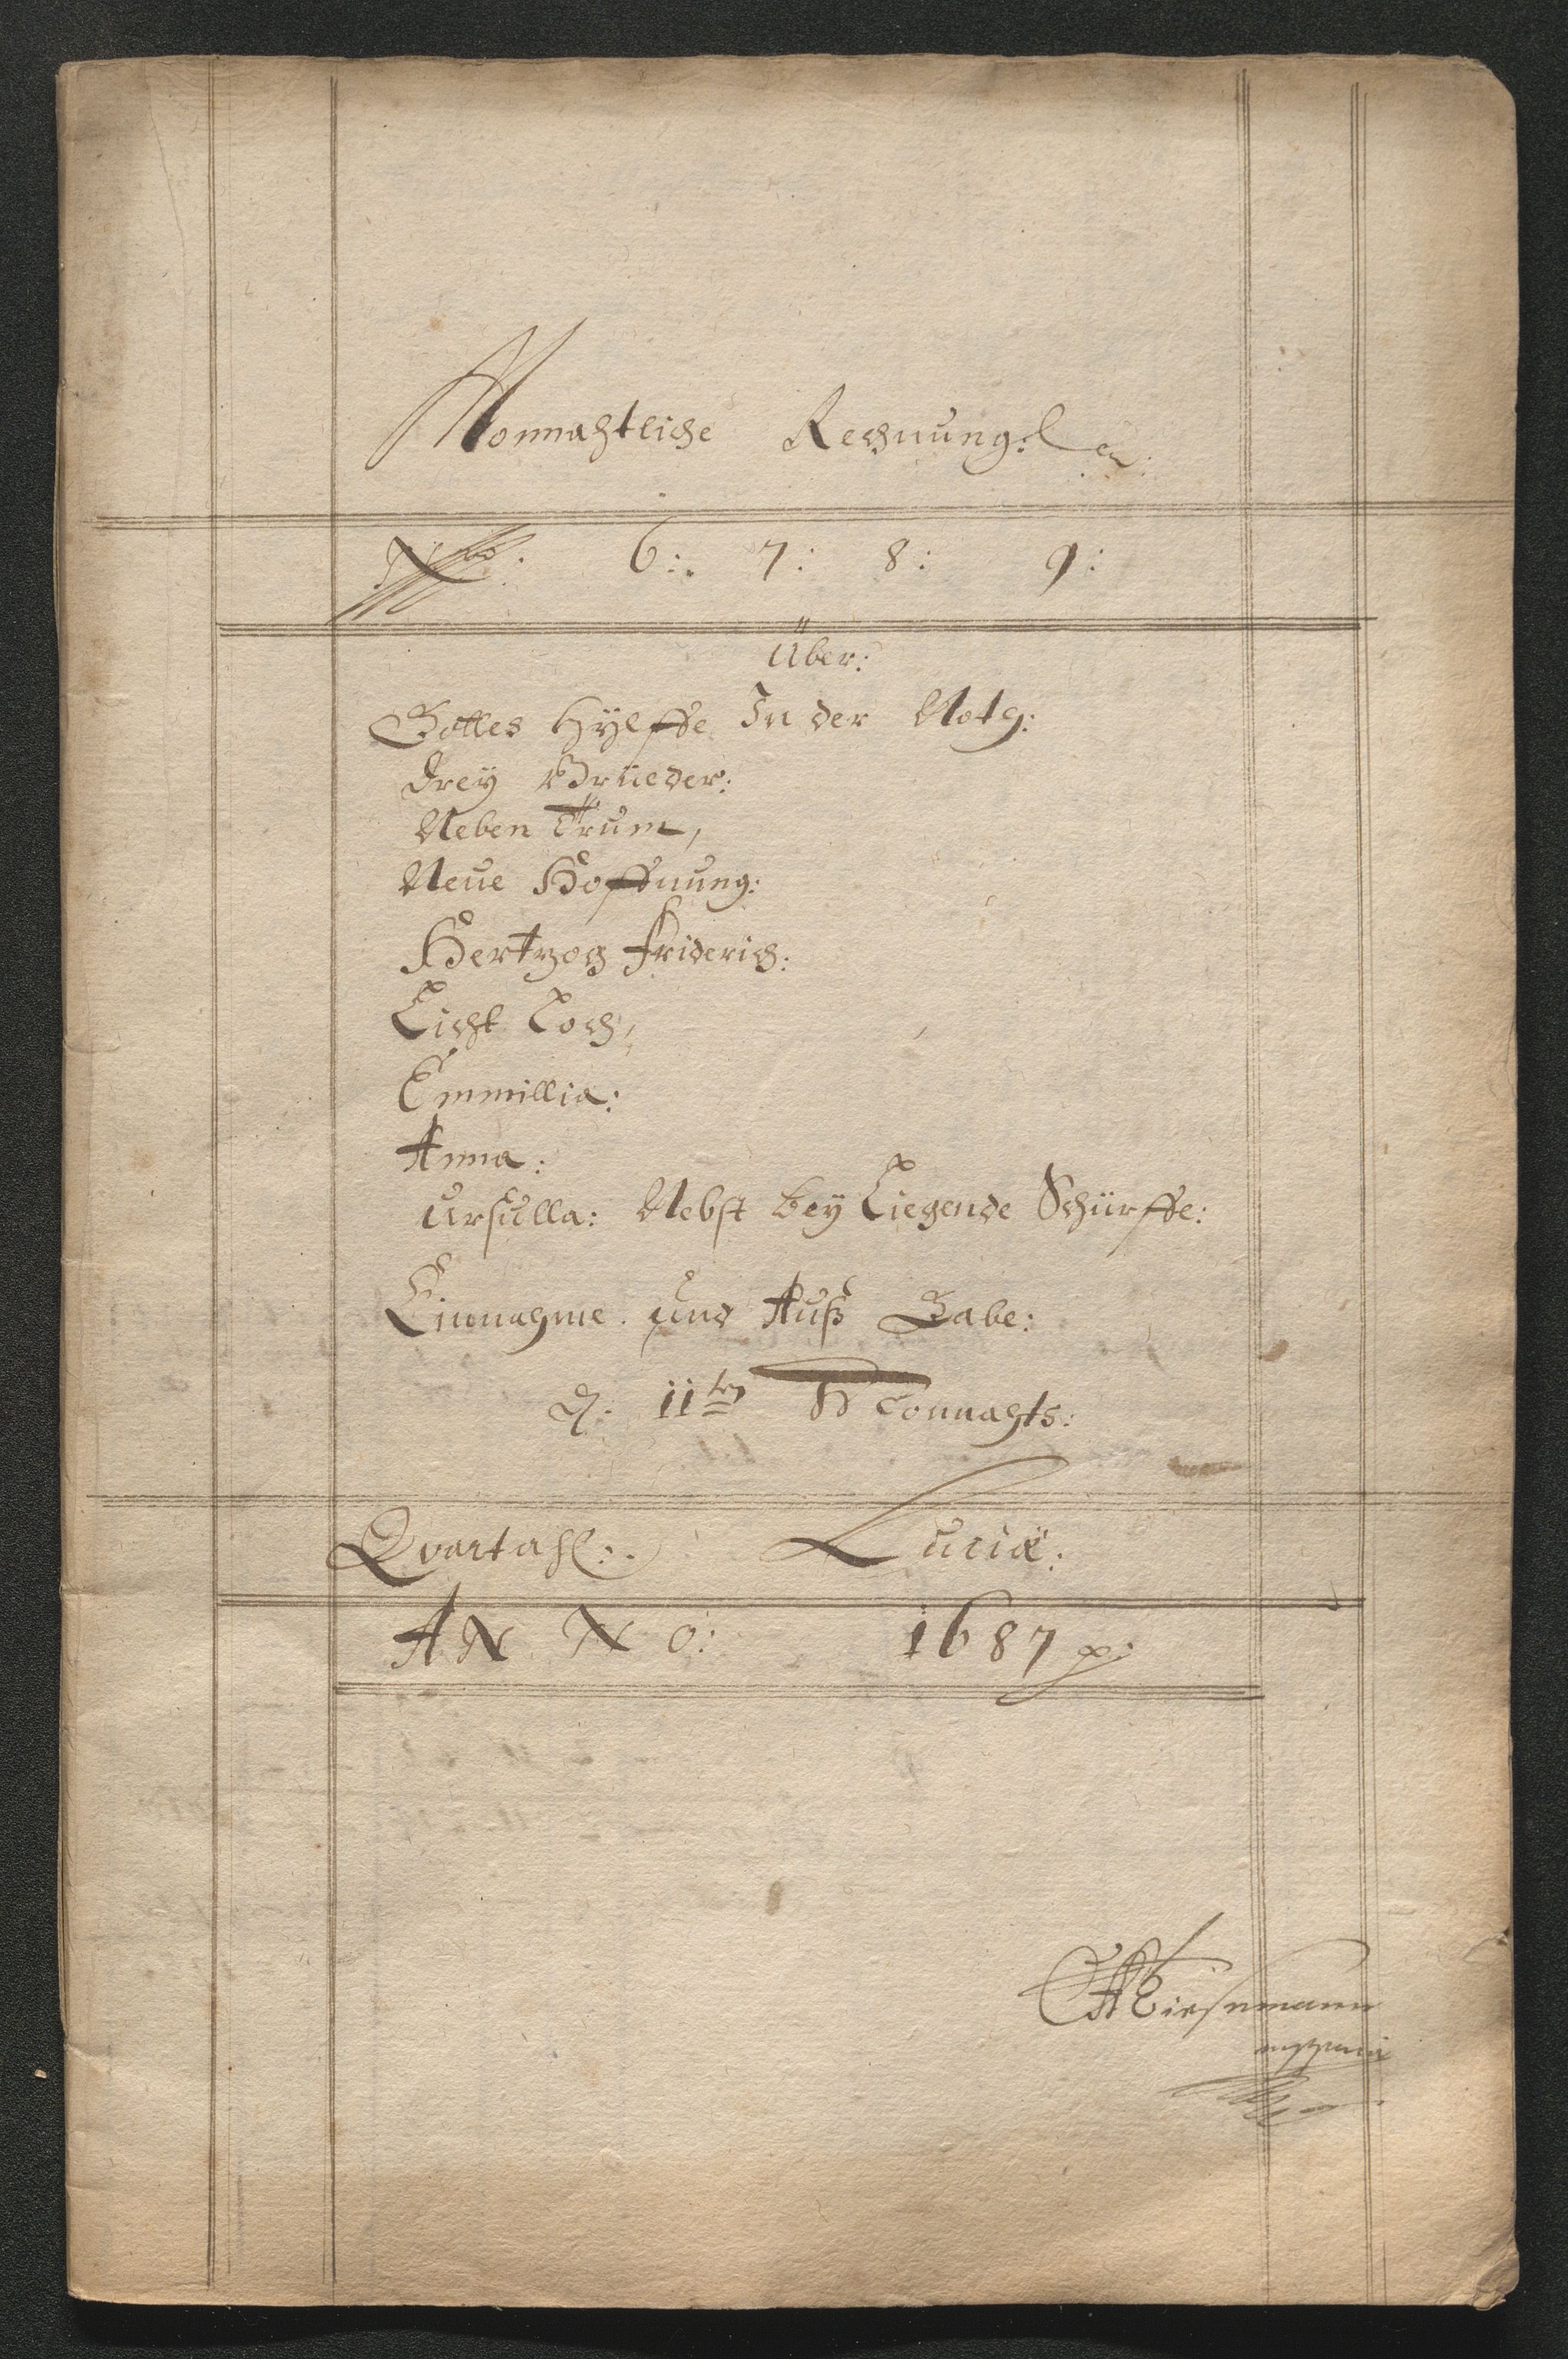 Monnahtliche Rechnung:
6: 7: 8: 9:
Über:
Gottes Hÿlffe In der Noth:
Dreÿ Brüeder:
Neben Trum,
Neue Hoffnung:
Hertzog Friderich:
Licht Loch,
Emmillia:
Anna:
Ursulla: Nebst beÿ Liegende Schürffe:
Einnahme. und Auß Gabe:
d. 11ten Monnahts:
Qvartahl: Luciæ:
ANNO: 1687